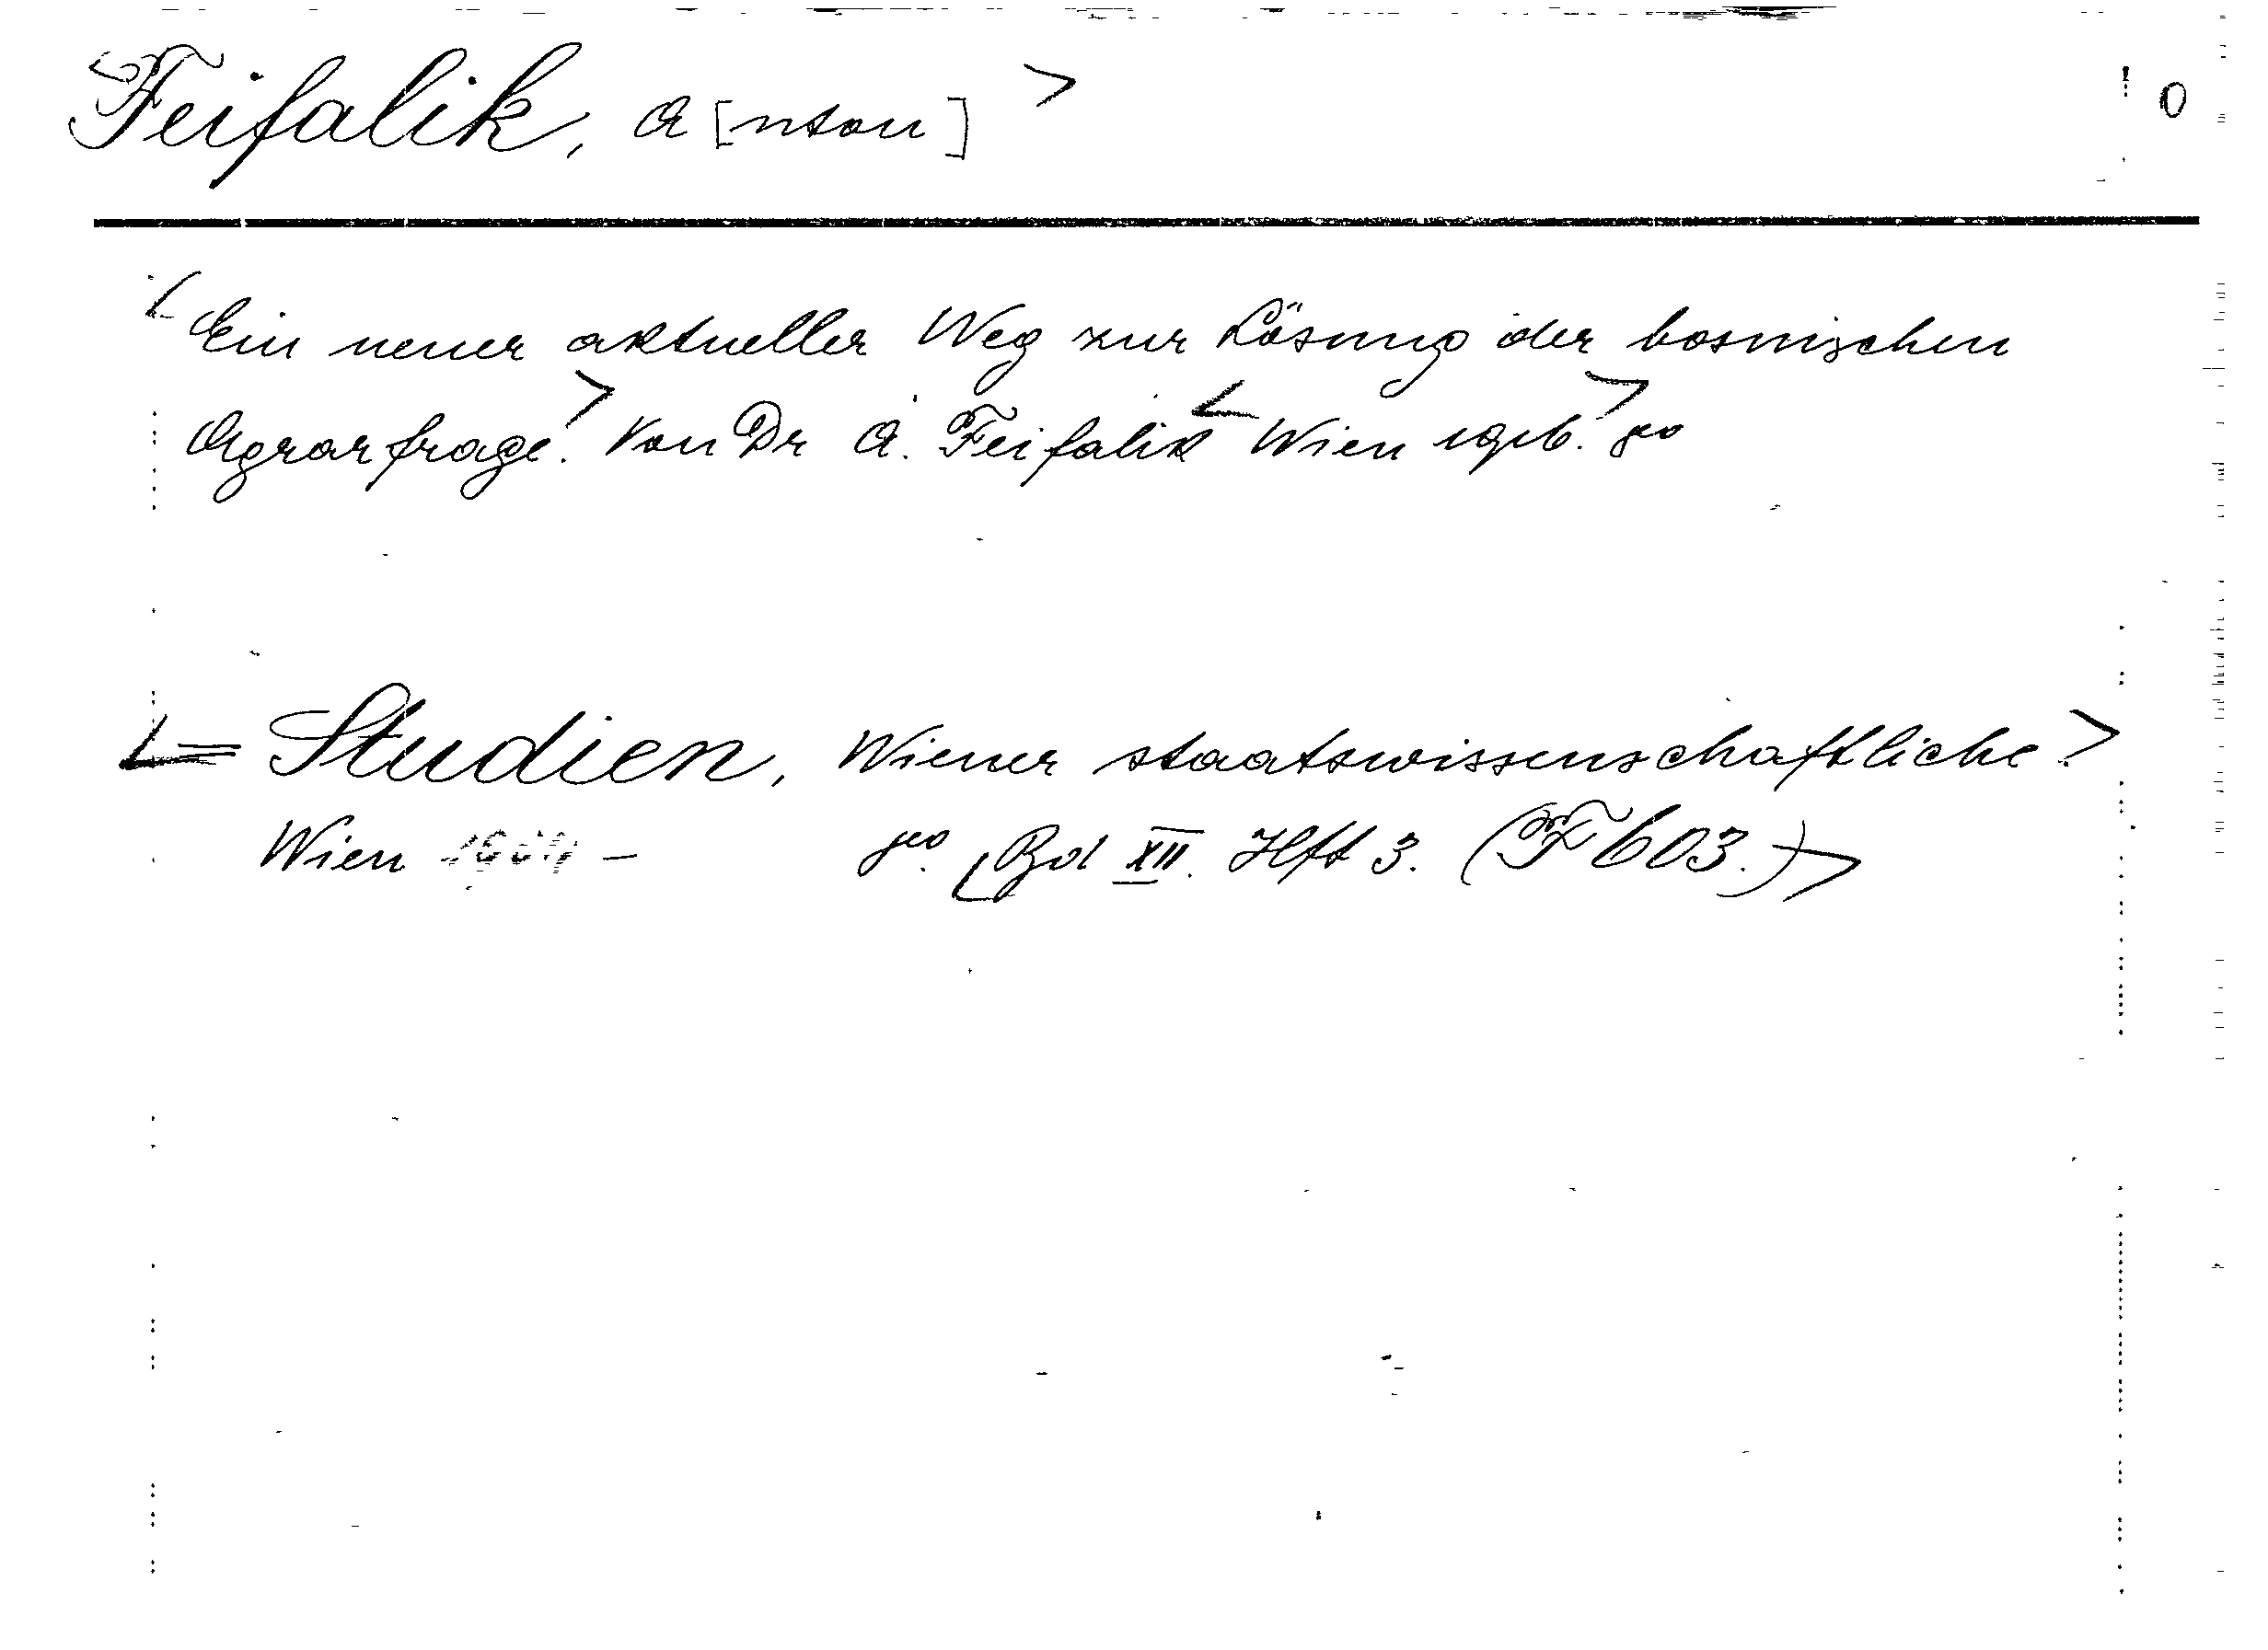 <Feifalik, A[nton]> 0
<Ein neuer aktueller Weg zur Lösung der bosnischen
Agrarfrage.> Von Dr A. Feifalik <Wien 1916.> 8°
<= Studien, Wiener staatswissenschaftliche.>
Wien – 8°. <Bd XII. Hft 3. (F 603.)>